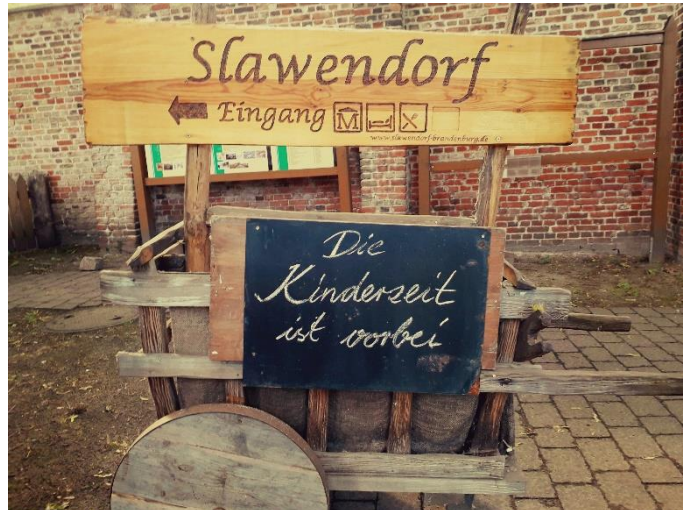 Slawendorf
Eingang M
www.slawendorf-brandenburg.de
Die
Kinderzeit
ist vorbei